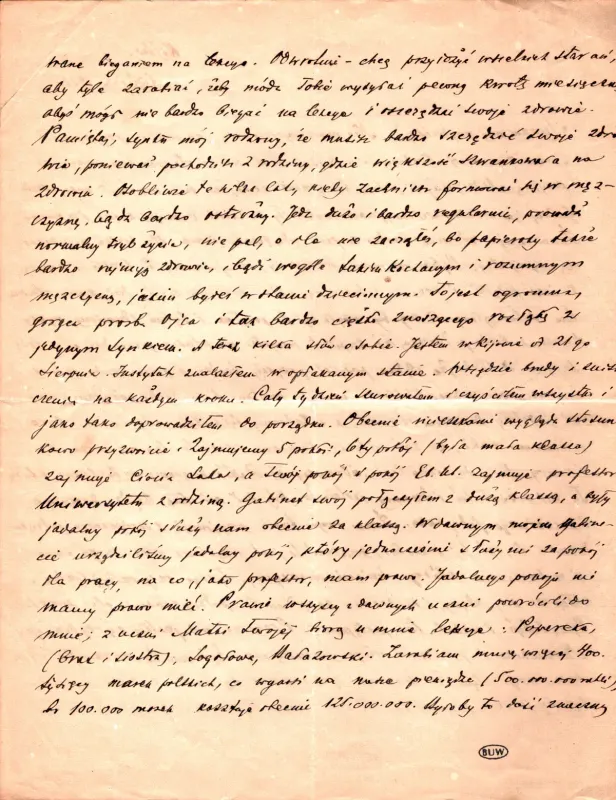 wane bieganiem na lekcye. Odwrotnie – chcę przyłożyć wszelkich starań,
aby tyle zarabiać, żeby módz Tobie wysyłać pewną kwotę miesięczną
abyś mógł nie bardzo biegać na lekcye i oszczędzać swoje zdrowie.
Pamiętaj, synku mój rodzony, że musisz bardzo szczędzić swoje zdro
wie, ponieważ pochodzisz z rodziny, gdzie większość szwankowała na
zdrowiu. Osobliwie te kilka lat, kiedy zaczniesz formować się w męż-
czyznę, bądź bardzo ostrożny. Jedz dużo i bardzo regularnie, prowadź
normalny tryb życia, nie pal, o ile nie zacząłeś, bo papierosy także
bardzo rujnują zdrowie, i bądź wogóle takim kochanym i rozumnym
mężczyzną, jakim byłeś w stanie dziecinnym. To jest ogromna,
gorąca prośba Ojca i tak bardzo ciężko znoszącego rozłąkę z
jedynym synkiem. A teraz kilka słów o sobie. Jestem w Kijowie od 21go
Sierpnia. Instytut znalazłem w opłakanym stanie. Wszędzie brudy i znisz
czenie na każdym kroku. Cały tydzień szorowałem i czyściłem wszystko i
jako tako doprowadziłem do porządku. Obecnie mieszkanie wygląda stosun
kowo przyzwoicie. Zajmujemy 5 pokoi, 6ty pokój (była mała klassa)
zajmuje Ciocia Lala, a Twój pokój i pokój zajmuje professor
Uniwersytetu z rodziną. Gabinet swój połączyłem z dużą klassą, a były
jadalny pokój służy nam obecnie za klassę. W dawnym moim gabine-
cie urządziliśmy jadalny pokój, który jednocześnie służy mi za pokój
dla pracy, na co, jako professor, mam prawo. Jadalnego pokoju nie
mamy prawo mieć. Prawie wszyscy z dawnych uczni powrócili do
mnie; z uczni Matki Twojej biorą u mnie lekcye:
(brat i siostra), Zarabiam mniej więcej 400.
tysięcy marek polskich, co wynosi na nasze pieniądze (500.000.000 rubli)
bo 100.000 marek kosztuje obecnie 125.000.000. Byłoby to dość znaczną
BUW